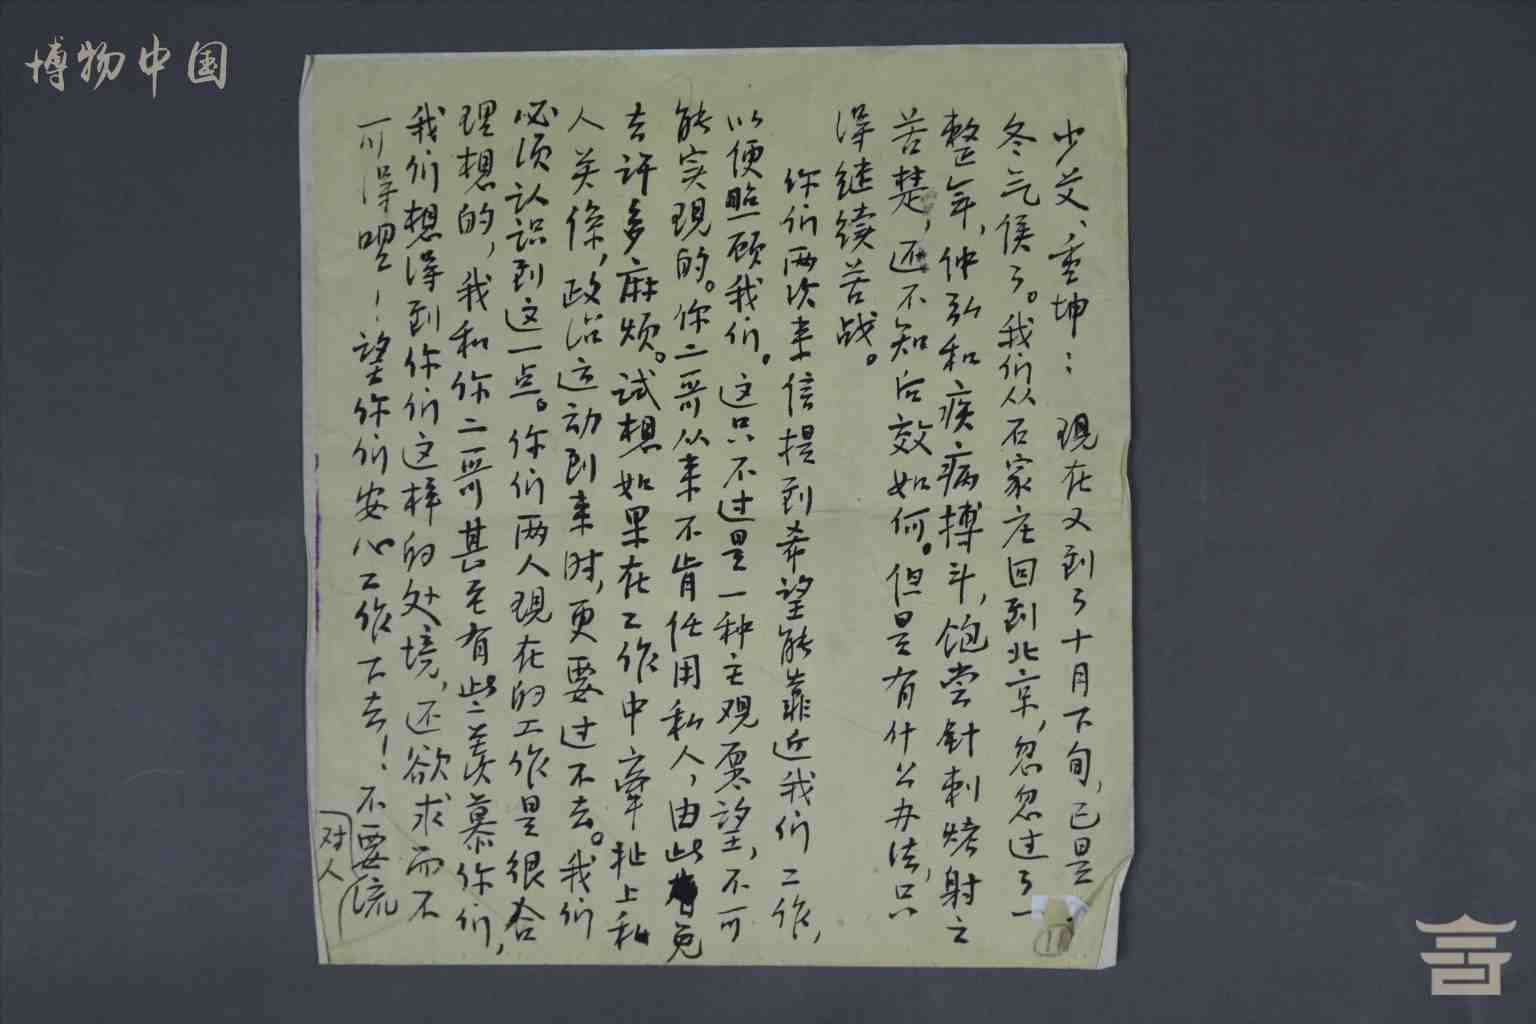 博物中国
少艾、重坤：现在又到了十月下旬，已是
冬气候了。我们从石家庄回到北京，忽忽过了一
整年，仲弘和疾病搏斗，饱尝针刺烤射之
苦楚，还不知后效如何。但是有什么办法，只
得继续苦战。
你们两次来信提到希望能靠近我们工作，
以便照顾我们。这只不过是一种主观愿望，不可
能实现的。你二哥从来不肯任用私人，由此免
去许多麻烦。试想如果在工作中牵扯上私
人关系，政治运动到来时，更要过不去。我们
必须认识到这一点。你们两人现在的工作是很合
理想的，我和你二哥甚至有些羡慕你们，
我们想得到你们这样的处境，还欲求而不
可得哩！望你们安心工作下去！不要流
对人
11